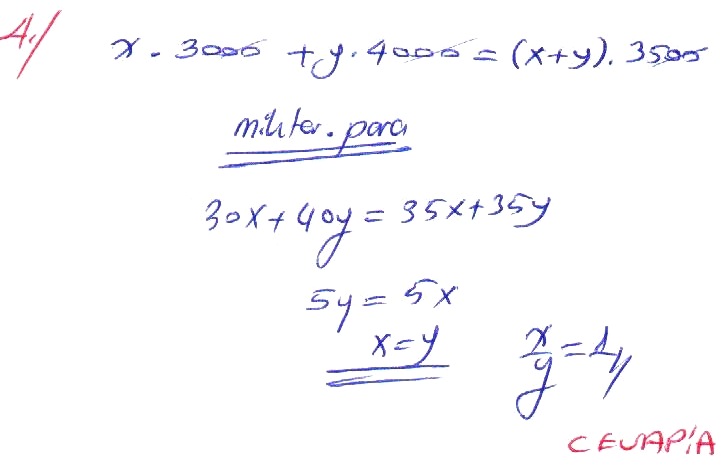 4./ x . 3000 + y . 4000 = (x+y) . 3500
miktar . para
30x + 40y = 35x + 35y
5y = 5x
x = y x/y = 1//
CEVAP: A